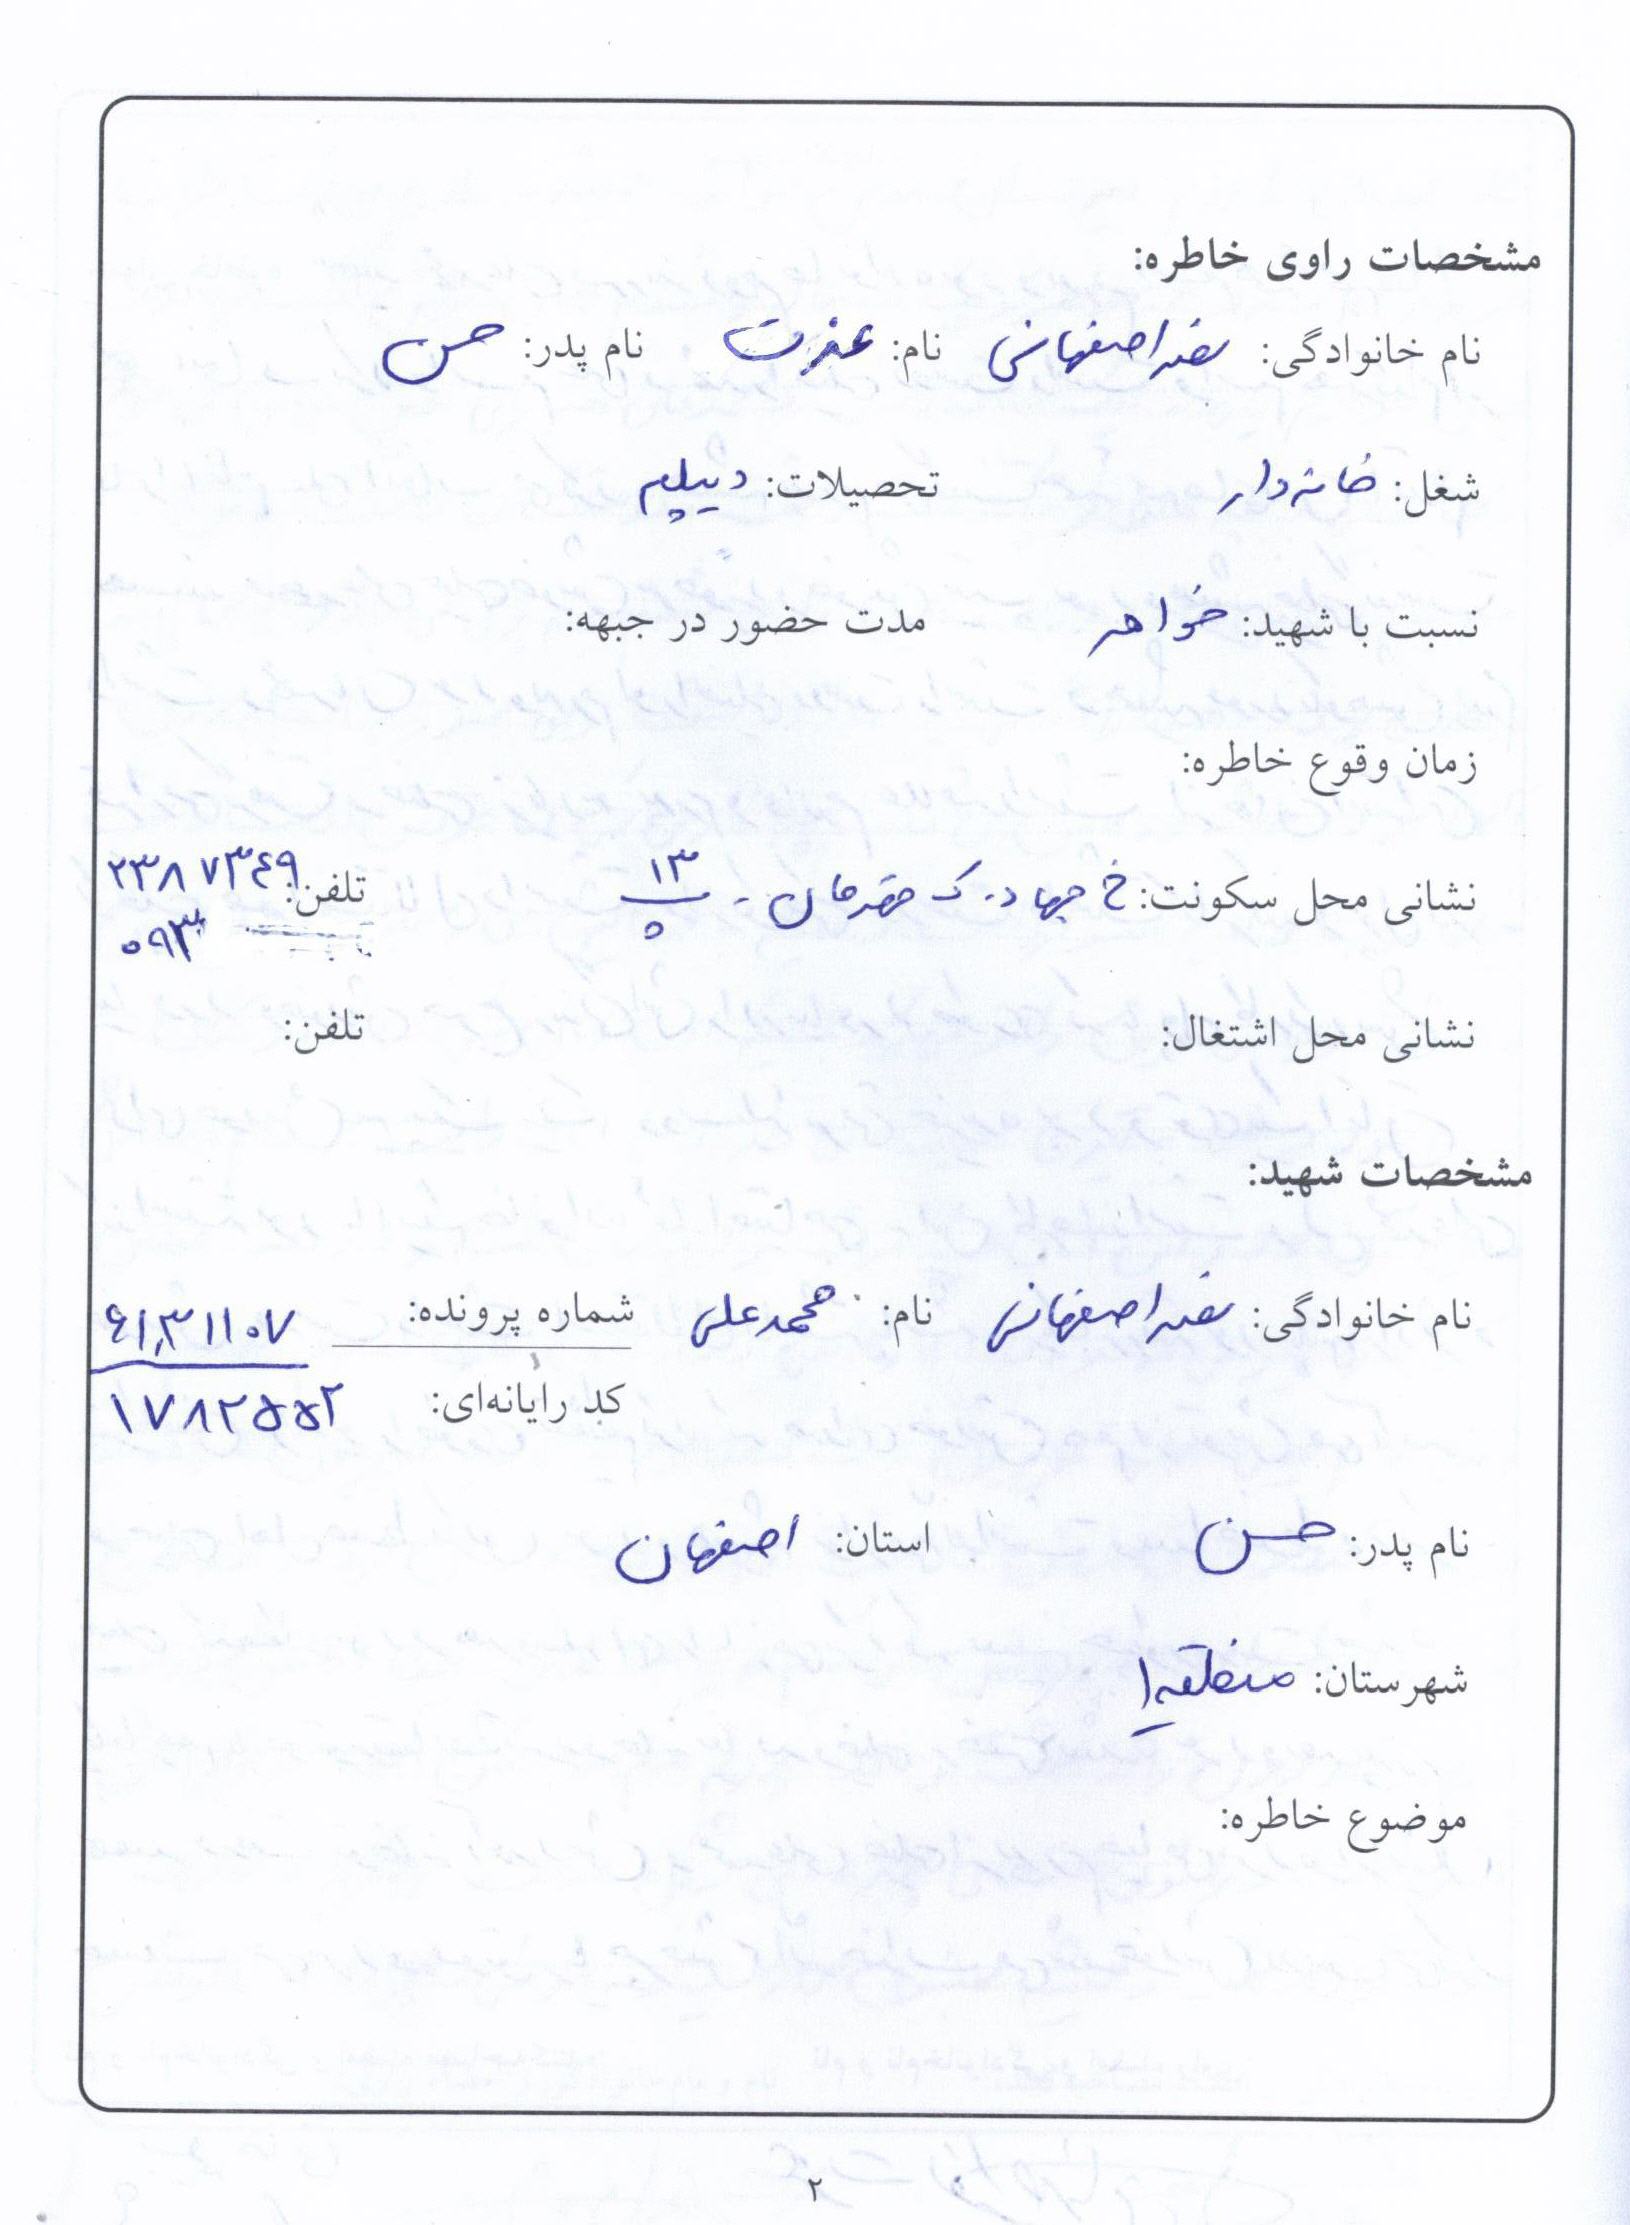 مشخصات راوی خاطره:
نام خانوادگی: نصر اصفهانی نام: عذرت نام پدر: حسن
شغل: خانه دار تحصیلات: دیپلم
نسبت با شهید: خواهر مدت حضور در جبهه:
زمان وقوع خاطره:
نشانی محل سکونت: خ جهاد. ک قهرمان - پ ۱۳ تلفن: ۲۳۸۷۳۴۹
۰۹۳
نشانی محل اشتغال: تلفن:
مشخصات شهید:
نام خانوادگی: نصر اصفهانی نام: محمدعلی شماره پرونده: ۶۱۳۱۱۰۷
کد رایانه‌ای: ۱۷۸۲۵۵۲
نام پدر: حسن استان: اصفهان
شهرستان: منطقه ۱
موضوع خاطره:
۲